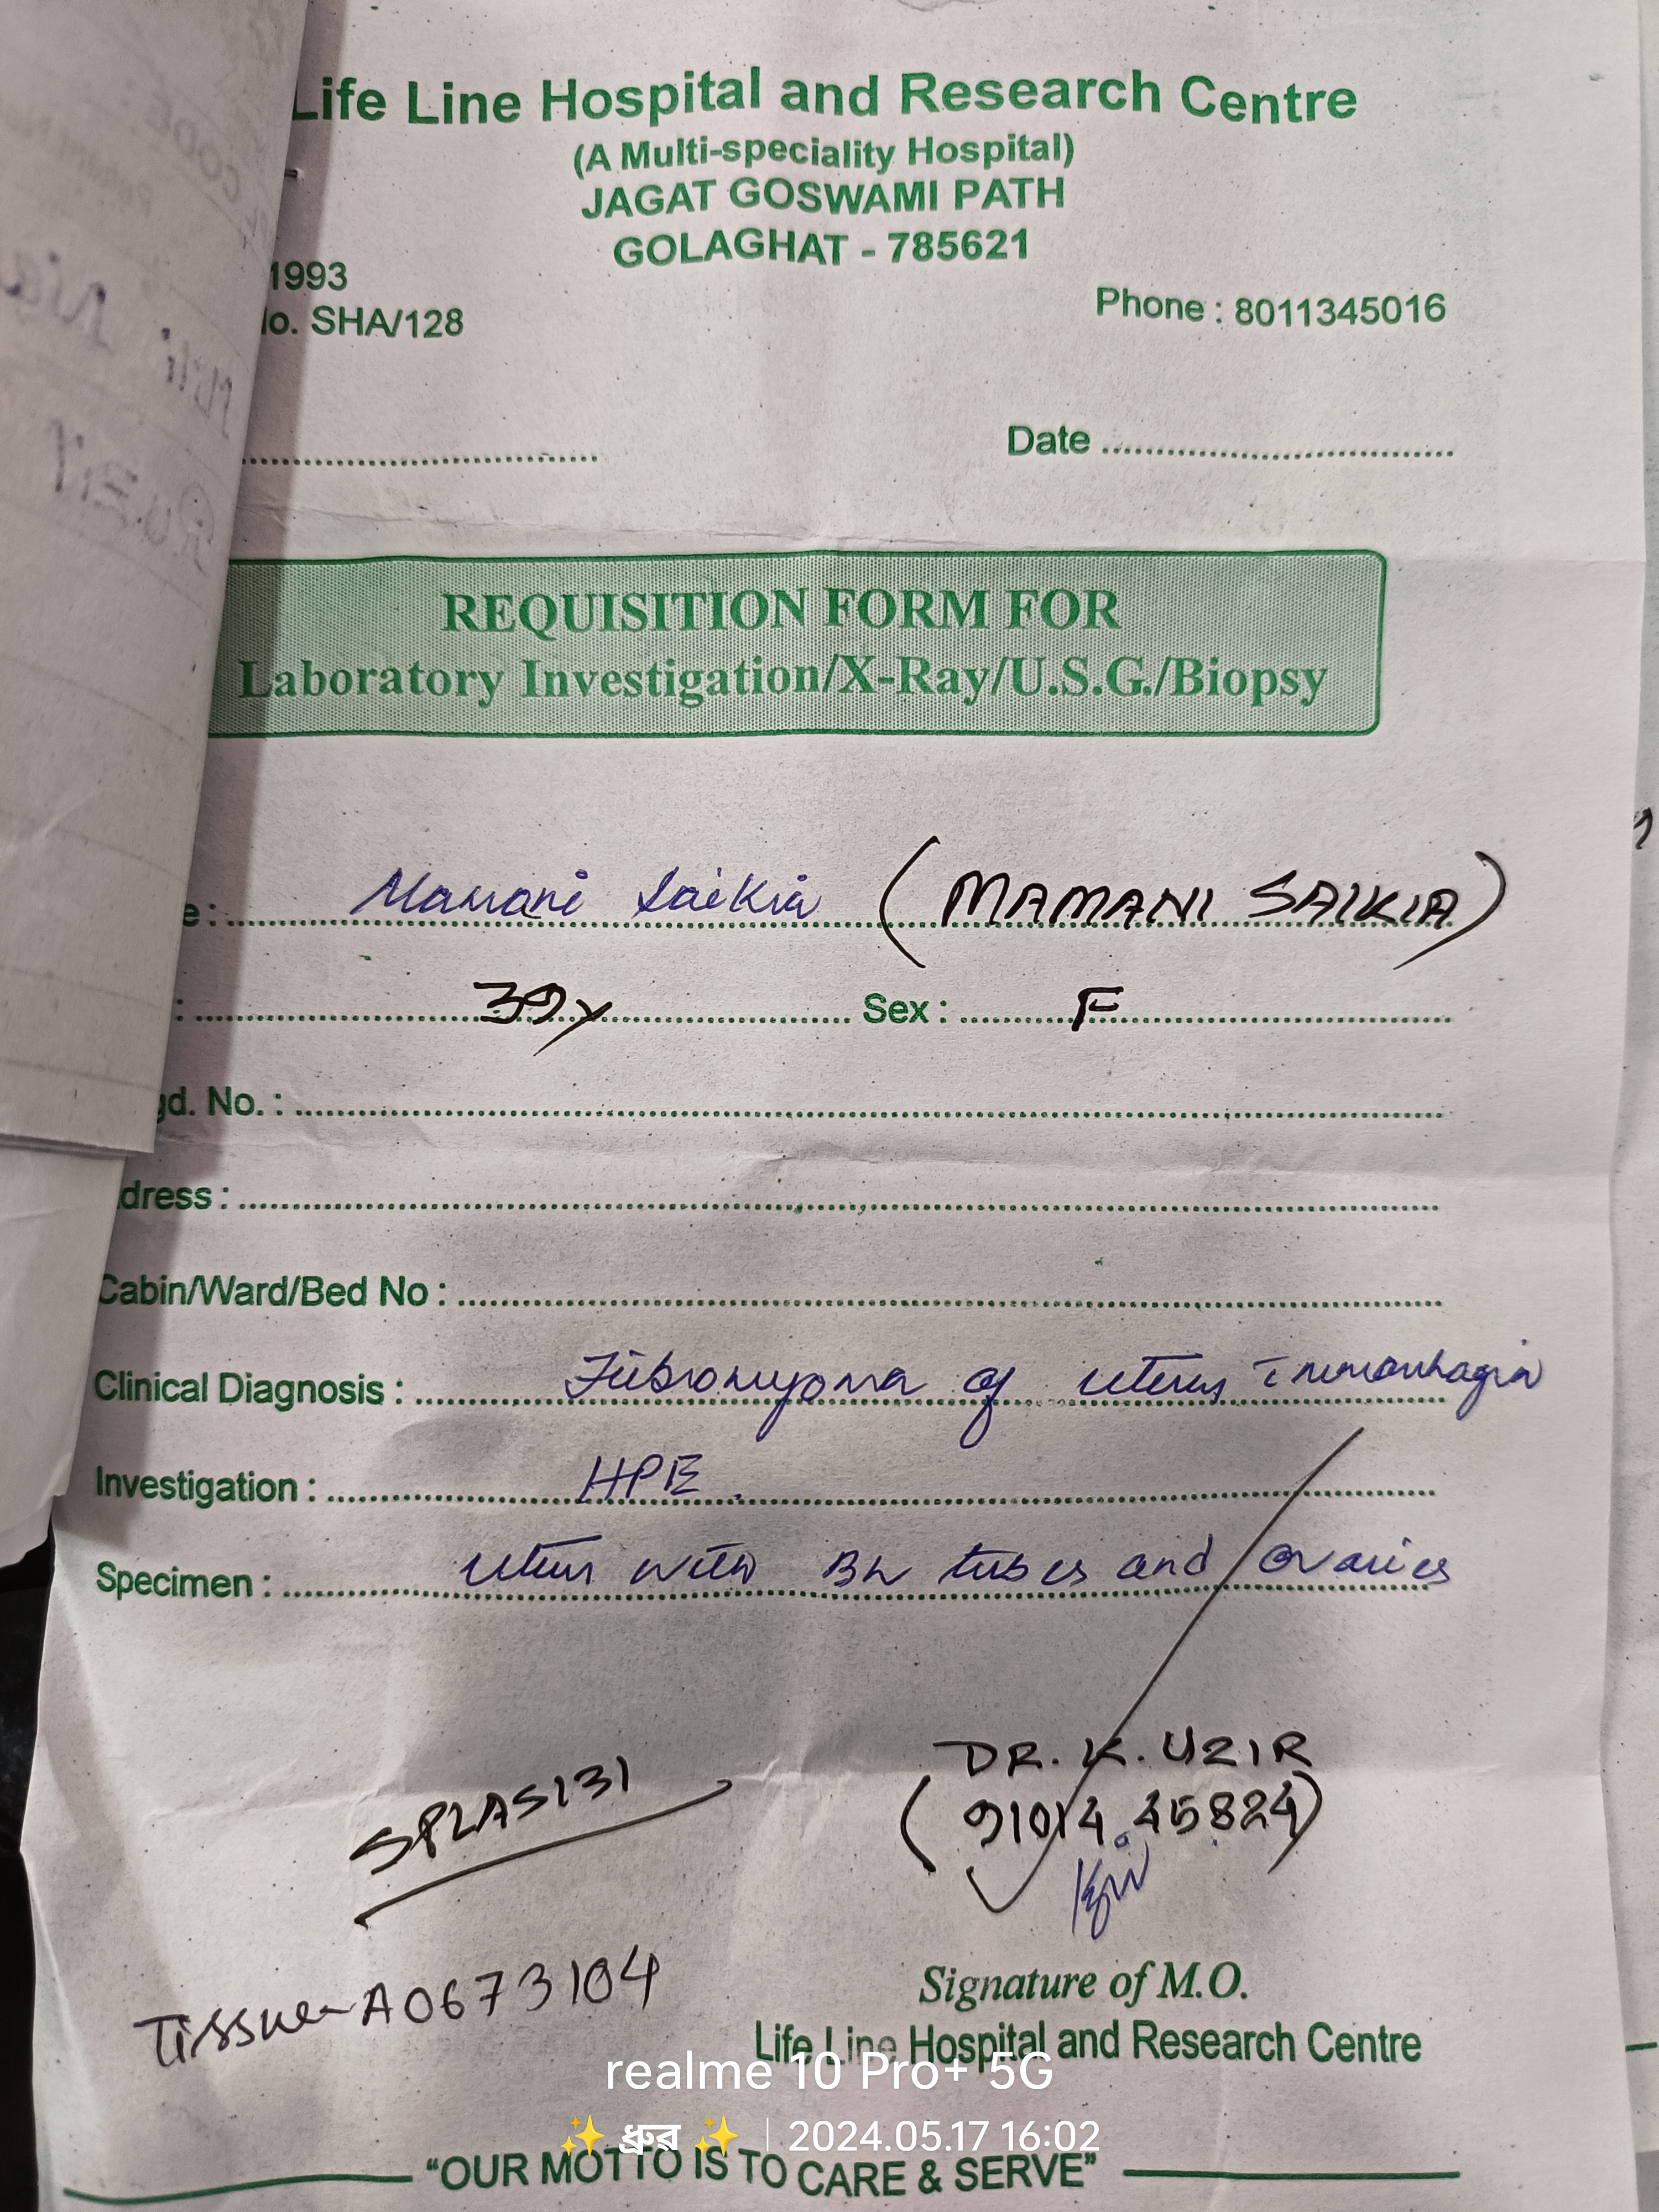 Life Line Hospital and Research Centre
(A Multi-speciality Hospital)
JAGAT GOSWAMI PATH
GOLAGHAT - 785621
1993
o. SHA/128
Phone : 8011345016
Date
REQUISITION FORM FOR
Laboratory Investigation/X-Ray/U.S.G./Biopsy
e : Mamani Saikia (MAMANI SAIKIA)
: 39y Sex : F
gd. No. :
dress :
Cabin/Ward/Bed No :
Clinical Diagnosis : Fibromyoma of uterus c̄ menorrhagia
Investigation : HPE.
Specimen : Uterus with B/L tubes and ovaries
SPLAS131
DR. K. UZIR
(91014 45824)
Tissue - A0673104
Signature of M.O.
Life Line Hospital and Research Centre
realme 10 Pro+ 5G
✨ ধ্রুৱ ✨ | 2024.05.17 16:02
“OUR MOTTO IS TO CARE & SERVE”